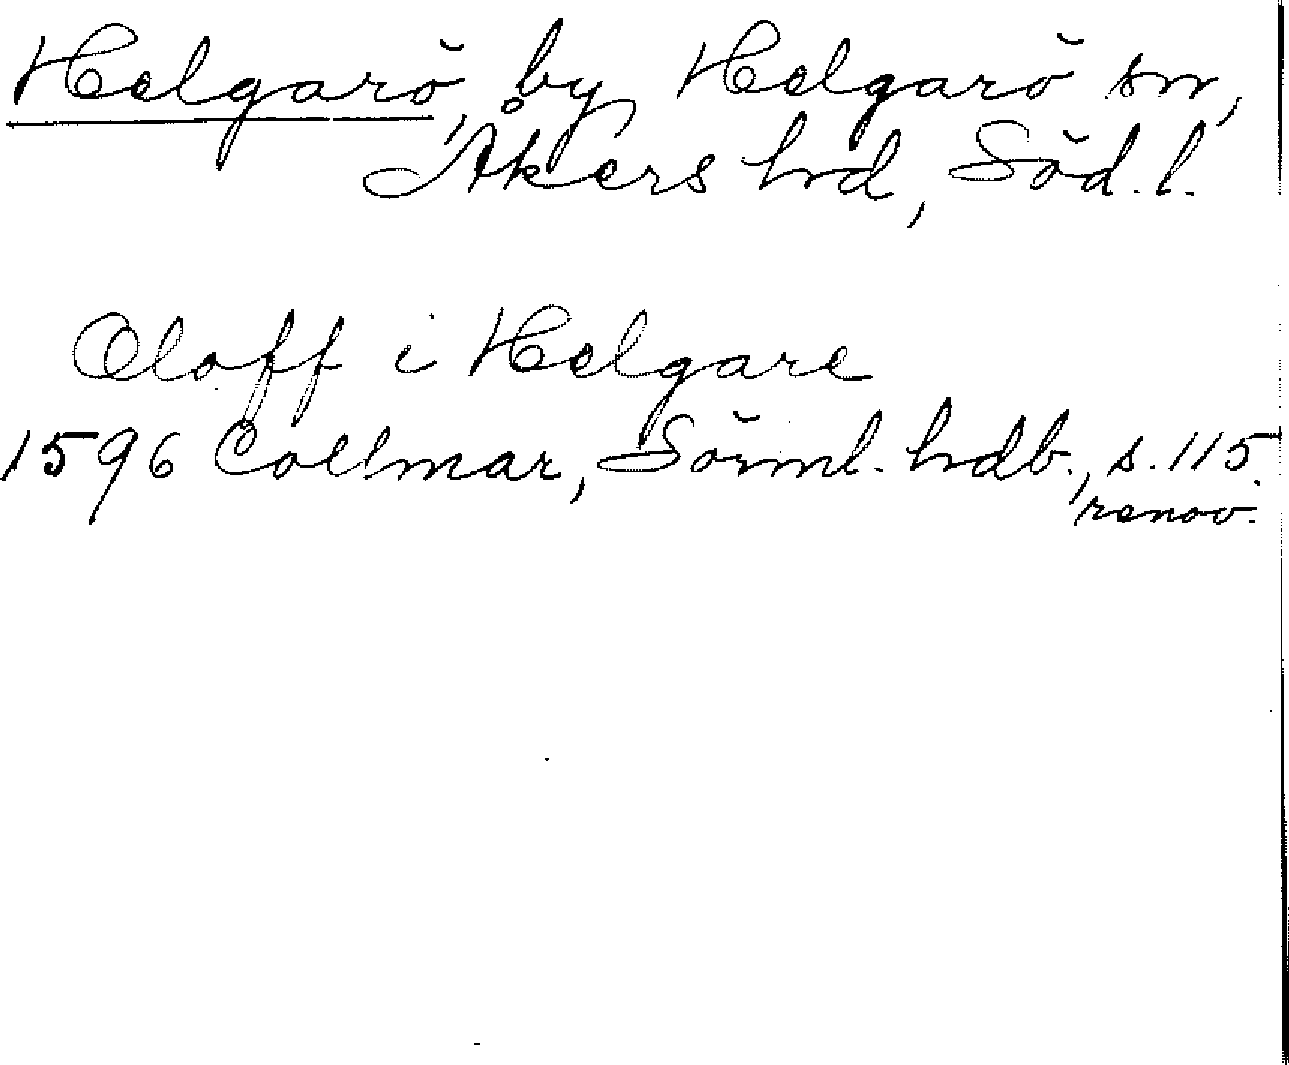 Helgarö, by, Helgarö sn,
Åkers hd, Söd. l.
Oloff i Helgare
1596 Collmar, Sörml. hdb., s. 115.
renov.